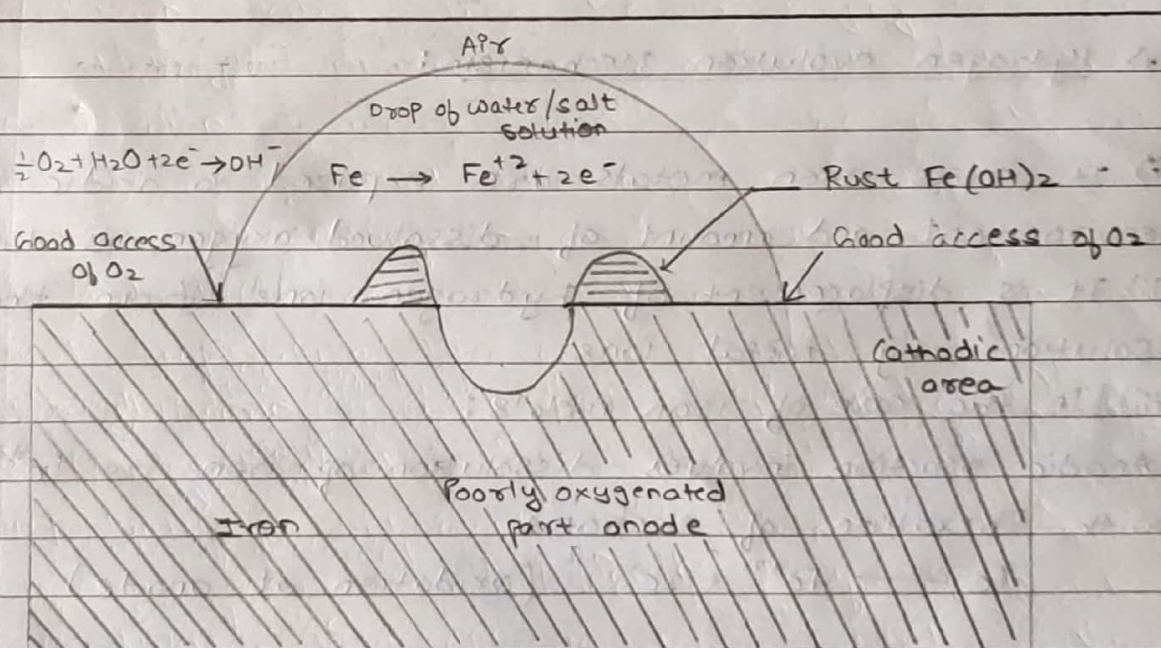 Air
Drop of water/salt
solution
½O2+H2O+2e⁻→OH⁻
Fe → Fe⁺²+2e⁻
Rust Fe(OH)2
Good access
of O2
Good access of O2
Cathodic
area
Poorly oxygenated
part anode
Iron